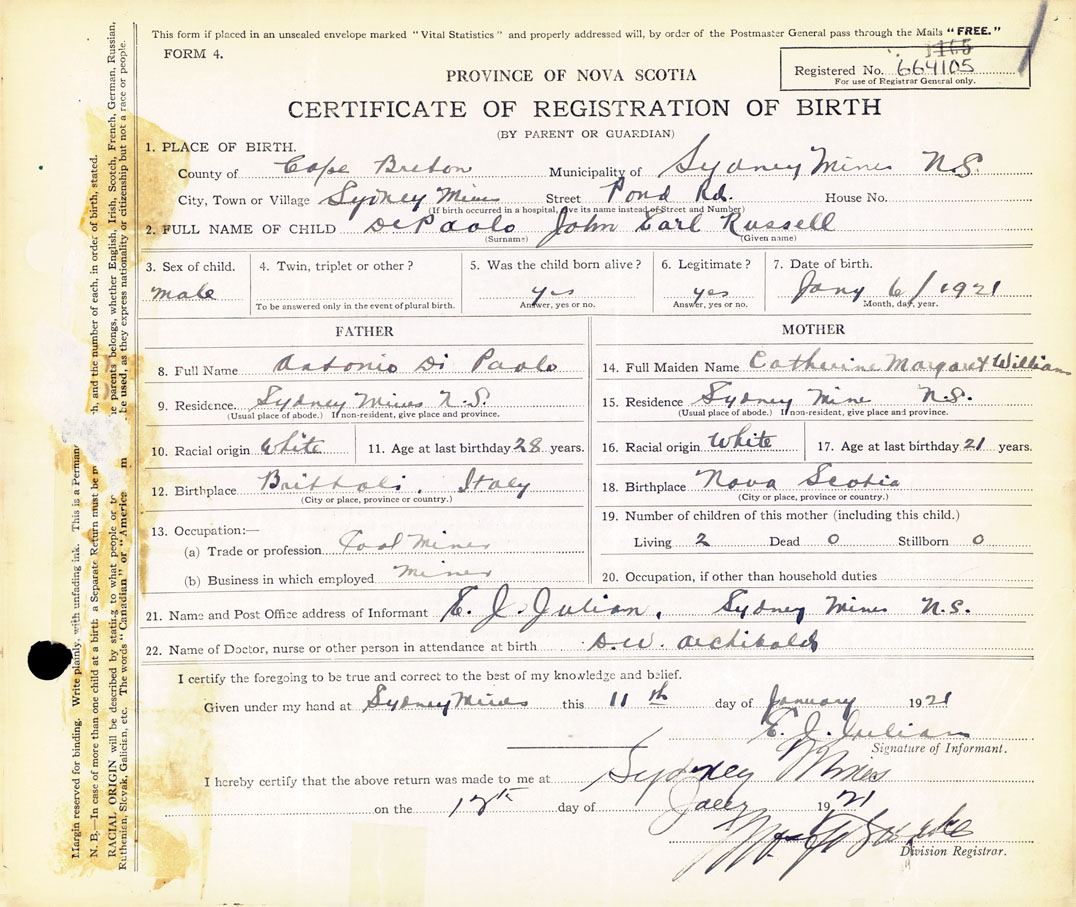 This form if placed in an unsealed envelope marked "Vital Statistics" and properly addressed will, by order of the Postmaster General pass through the Mails "FREE."
FORM 4.
1165
Registered No. 664105
For use of Registrar General only.
PROVINCE OF NOVA SCOTIA
CERTIFICATE OF REGISTRATION OF BIRTH
(BY PARENT OR GUARDIAN)
1. PLACE OF BIRTH.
County of Cape Breton Municipality of Sydney Mines N.S.
City, Town or Village Sydney Mines Street Pond Rd. House No.
(If birth occurred in a hospital, give its name instead of Street and Number)
2. FULL NAME OF CHILD DiPaolo John Earl Russell
(Surname) (Given name)
3. Sex of child. 4. Twin, triplet or other? 5. Was the child born alive? 6. Legitimate? 7. Date of birth.
male yes yes Jany 6/1921
To be answered only in the event of plural birth. Answer, yes or no. Answer, yes or no. Month, day, year.
FATHER MOTHER
8. Full Name Antonio Di Paolo 14. Full Maiden Name Catherine Margaret William
9. Residence. Sydney Mines N.S. 15. Residence Sydney Mine N.S.
(Usual place of abode.) If non-resident, give place and province. (Usual place of abode.) If non-resident, give place and province.
10. Racial origin White 11. Age at last birthday 28 years. 16. Racial origin White 17. Age at last birthday 21 years.
12. Birthplace Italy 18. Birthplace Nova Scotia
(City or place, province or country.) (City or place, province or country.)
13. Occupation:— 19. Number of children of this mother (including this child.)
(a) Trade or profession Coal Miner Living 2 Dead 0 Stillborn 0
(b) Business in which employed Miner 20. Occupation, if other than household duties
21. Name and Post Office address of Informant E. J. Julian, Sydney Mines N.S.
22. Name of Doctor, nurse or other person in attendance at birth D.W. Archibald
I certify the foregoing to be true and correct to the best of my knowledge and belief.
Given under my hand at Sydney Mines this 11th day of January 1921
E. J. Julian
Signature of Informant.
I hereby certify that the above return was made to me at Sydney Mines
on the day of 1921
Division Registrar.
Margin reserved for binding. Write plainly, with unfading ink. This is a Perman
N. B.—In case of more than one child at a birth a Separate Return must be m h, and the number of each, in order of birth, stated.
RACIAL ORIGIN will be described by stating to what people or parents belongs, whether English, Irish, Scotch, French, German, Russian,
Ruthenian, Slovak, Galician, etc. The words "Canadian" or "America be used, as they express nationality or citizenship but not a race or people.